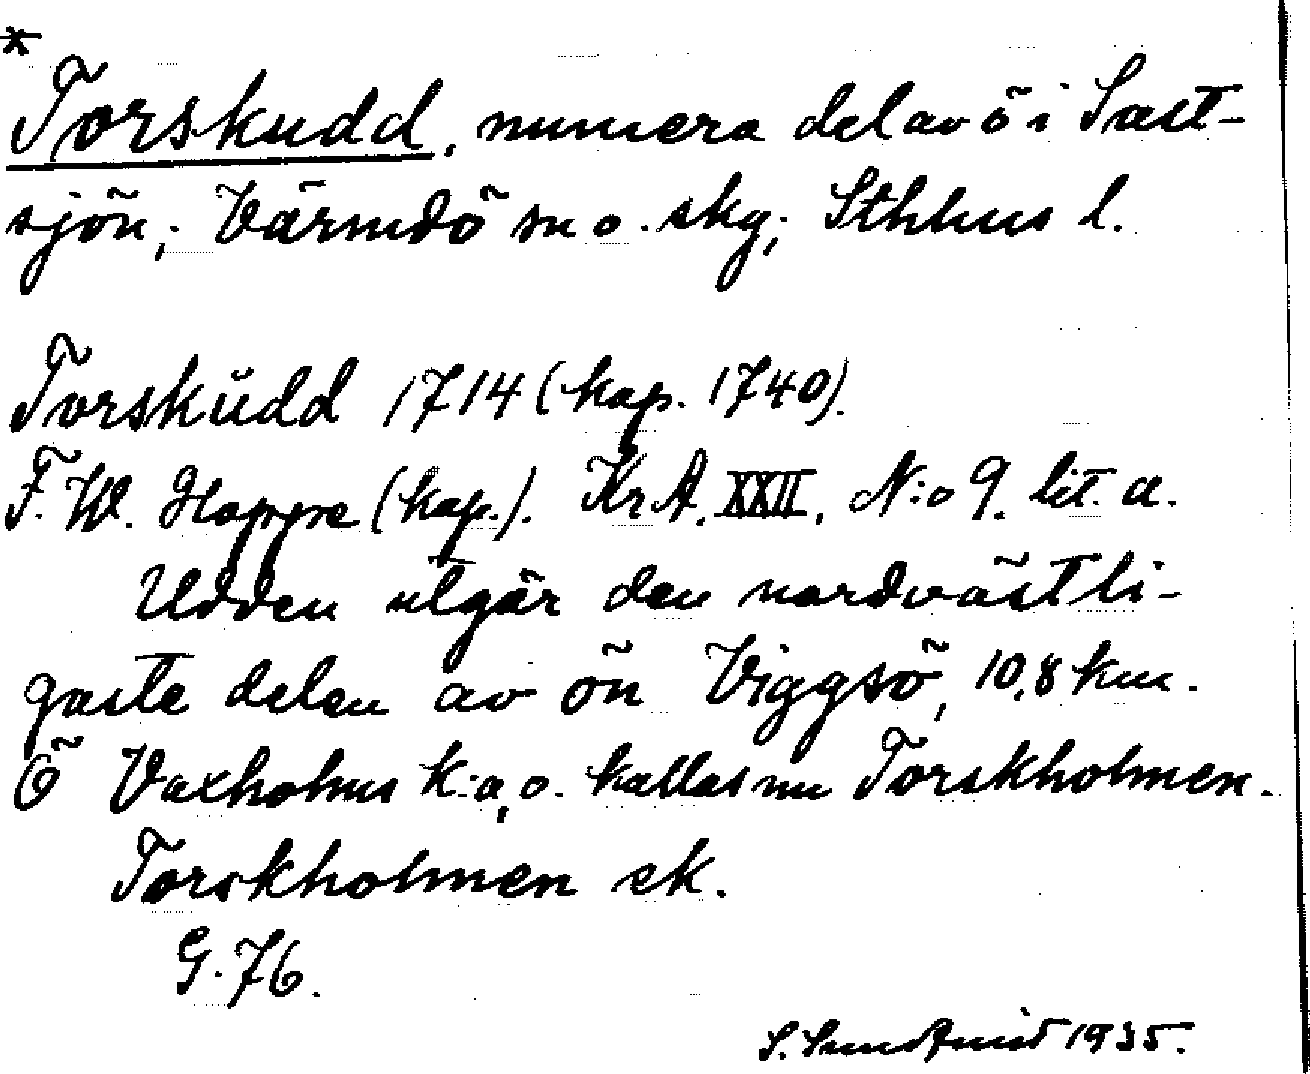 *
Torskudd, numera del av ö i Salt-
sjön; Värmdö sn o. skg; Sthlms l.
Torskŭdd 1714 (kap. 1740).
F. W. Hoppe (kap.). KrA. XXII, N:o 9. lit. a.
Udden utgör den nordvästli-
gaste delen av ön Viggsö, 10,8 km.
Ö Vaxholms k:a, o. kallas nu Torskholmen.
Torskholmen ek.
G. 76.
S. Sundqvist 1935.